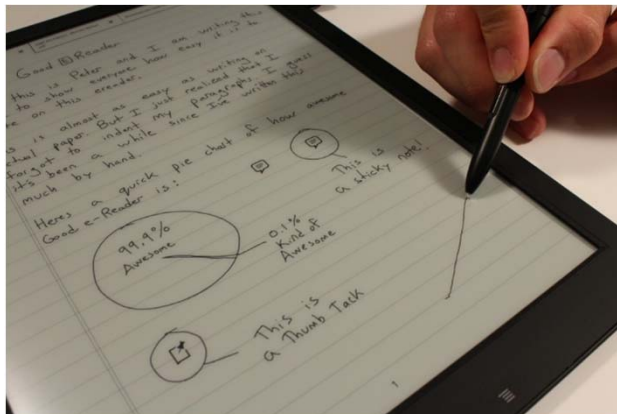 Good e-Reader
this is Peter and I am writing this
to show everyone how easy it is to
on this ereader.
is almost as easy as writing on
actual paper. But I just realized that I
forgot to indent my paragraphs. I guess
it's been a while since I've written this
much by hand.
Heres a quick pie chart of how awesome
Good e-Reader is:
This is
a sticky note!
99.9%
Awesome
0.1%
Kind of
Awesome
This is
a Thumb Tack
1